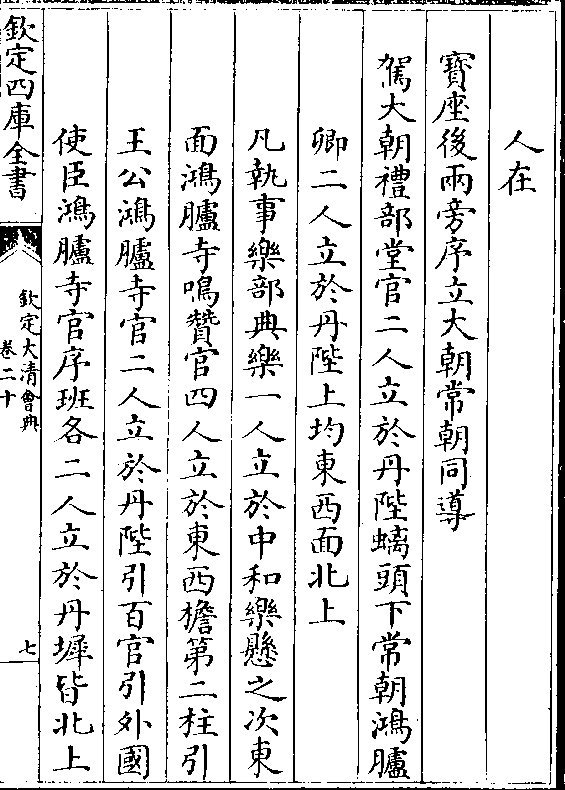 人在
寶座後兩旁序立大朝常朝同導
駕大朝禮部堂官二人立於丹陛螭頭下常朝鴻臚
卿二人立於丹陛上均東西面北上
凡執事樂部典樂一人立於中和樂懸之次東
面鴻臚寺鳴贊官四人立於東西檐第二柱引
王公鴻臚寺官二人立於丹陛引百官引外國
使臣鴻臚寺官序班各二人立於丹墀皆北上
欽定四庫全書
欽定大清會典
卷二十
七